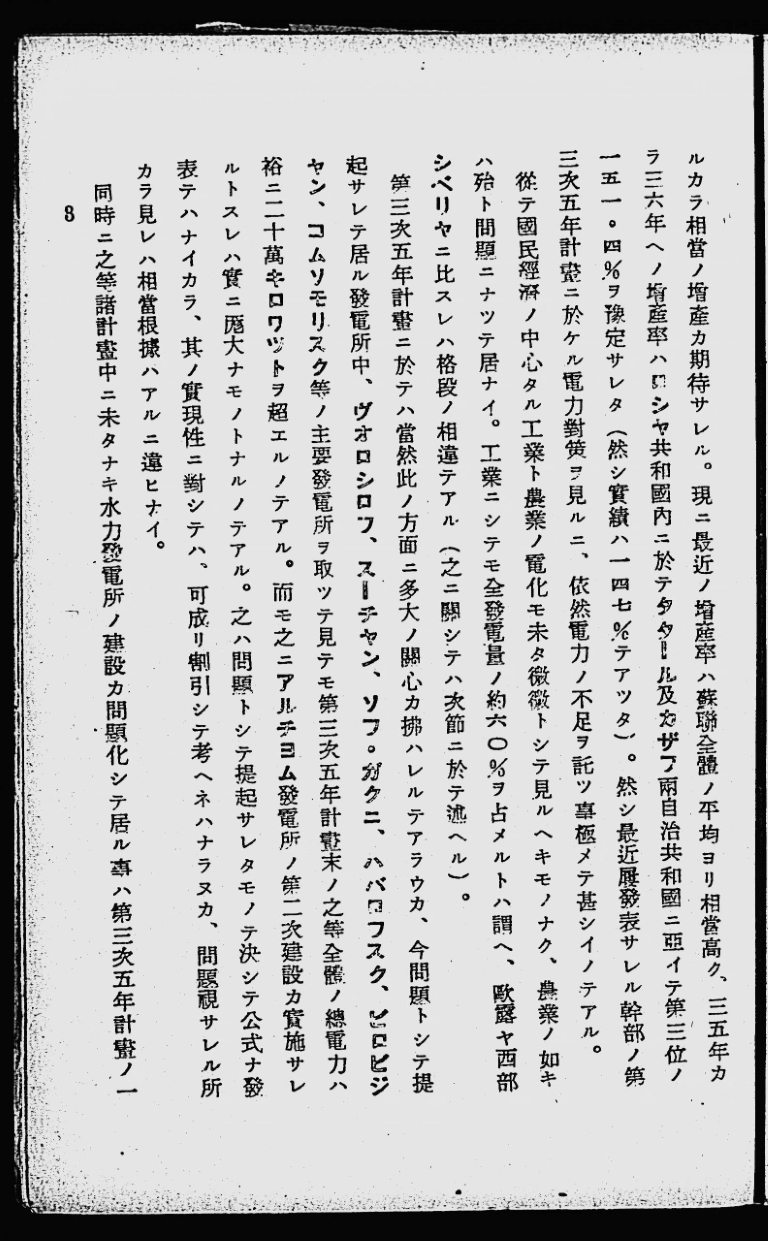 ルカラ相當ノ增產カ期待サレル。現ニ最近ノ增產率ハ蘇聯全體ノ平均ヨリ相當高ク、三五年カ
ラ三六年ヘノ增產率ハロシヤ共和國內ニ於テタタール及カザフ兩自治共和國ニ亞イテ第三位ノ
一五一。四%ヲ豫定サレタ(然シ實績ハ一四七%テアツタ)。然シ最近屢發表サレル幹部ノ第
三次五年計畫ニ於ケル電力對策ヲ見ルニ、依然電力ノ不足ヲ託ツ事極メテ甚シイノテアル。
從テ國民經濟ノ中心タル工業ト農業ノ電化モ未タ微微トシテ見ルヘキモノナク、農業ノ如キ
ハ殆ト問題ニナツテ居ナイ。工業ニシテモ全發電量ノ約六〇%ヲ占メルトハ謂ヘ、歐露ヤ西部
シベリヤニ比スレハ格段ノ相違テアル(之ニ關シテハ次節ニ於テ述ヘル)。
第三次五年計畫ニ於テハ當然此ノ方面ニ多大ノ關心カ拂ハレルテアラウカ、今問題トシテ提
起サレテ居ル發電所中、ヴオロシロフ、スーチヤン、ソフ。ガクニ、ハバロフスク、ビロビジ
ヤン、コムソモリスク等ノ主要發電所ヲ取ツテ見テモ第三次五年計畫末ノ之等全體ノ總電力ハ
裕ニ二十萬キロワツトヲ超エルノテアル。而モ之ニアルチヨム發電所ノ第二次建設カ實施サレ
ルトスレハ實ニ厖大ナモノトナルノテアル。之ハ問題トシテ提起サレタモノテ決シテ公式ナ發
表テハナイカラ、其ノ實現性ニ對シテハ、可成リ割引シテ考ヘネハナラヌカ、問題視サレル所
カラ見レハ相當根據ハアルニ違ヒナイ。
同時ニ之等諸計畫中ニ未タナキ水力發電所ノ建設カ問題化シテ居ル事ハ第三次五年計畫ノ一
8